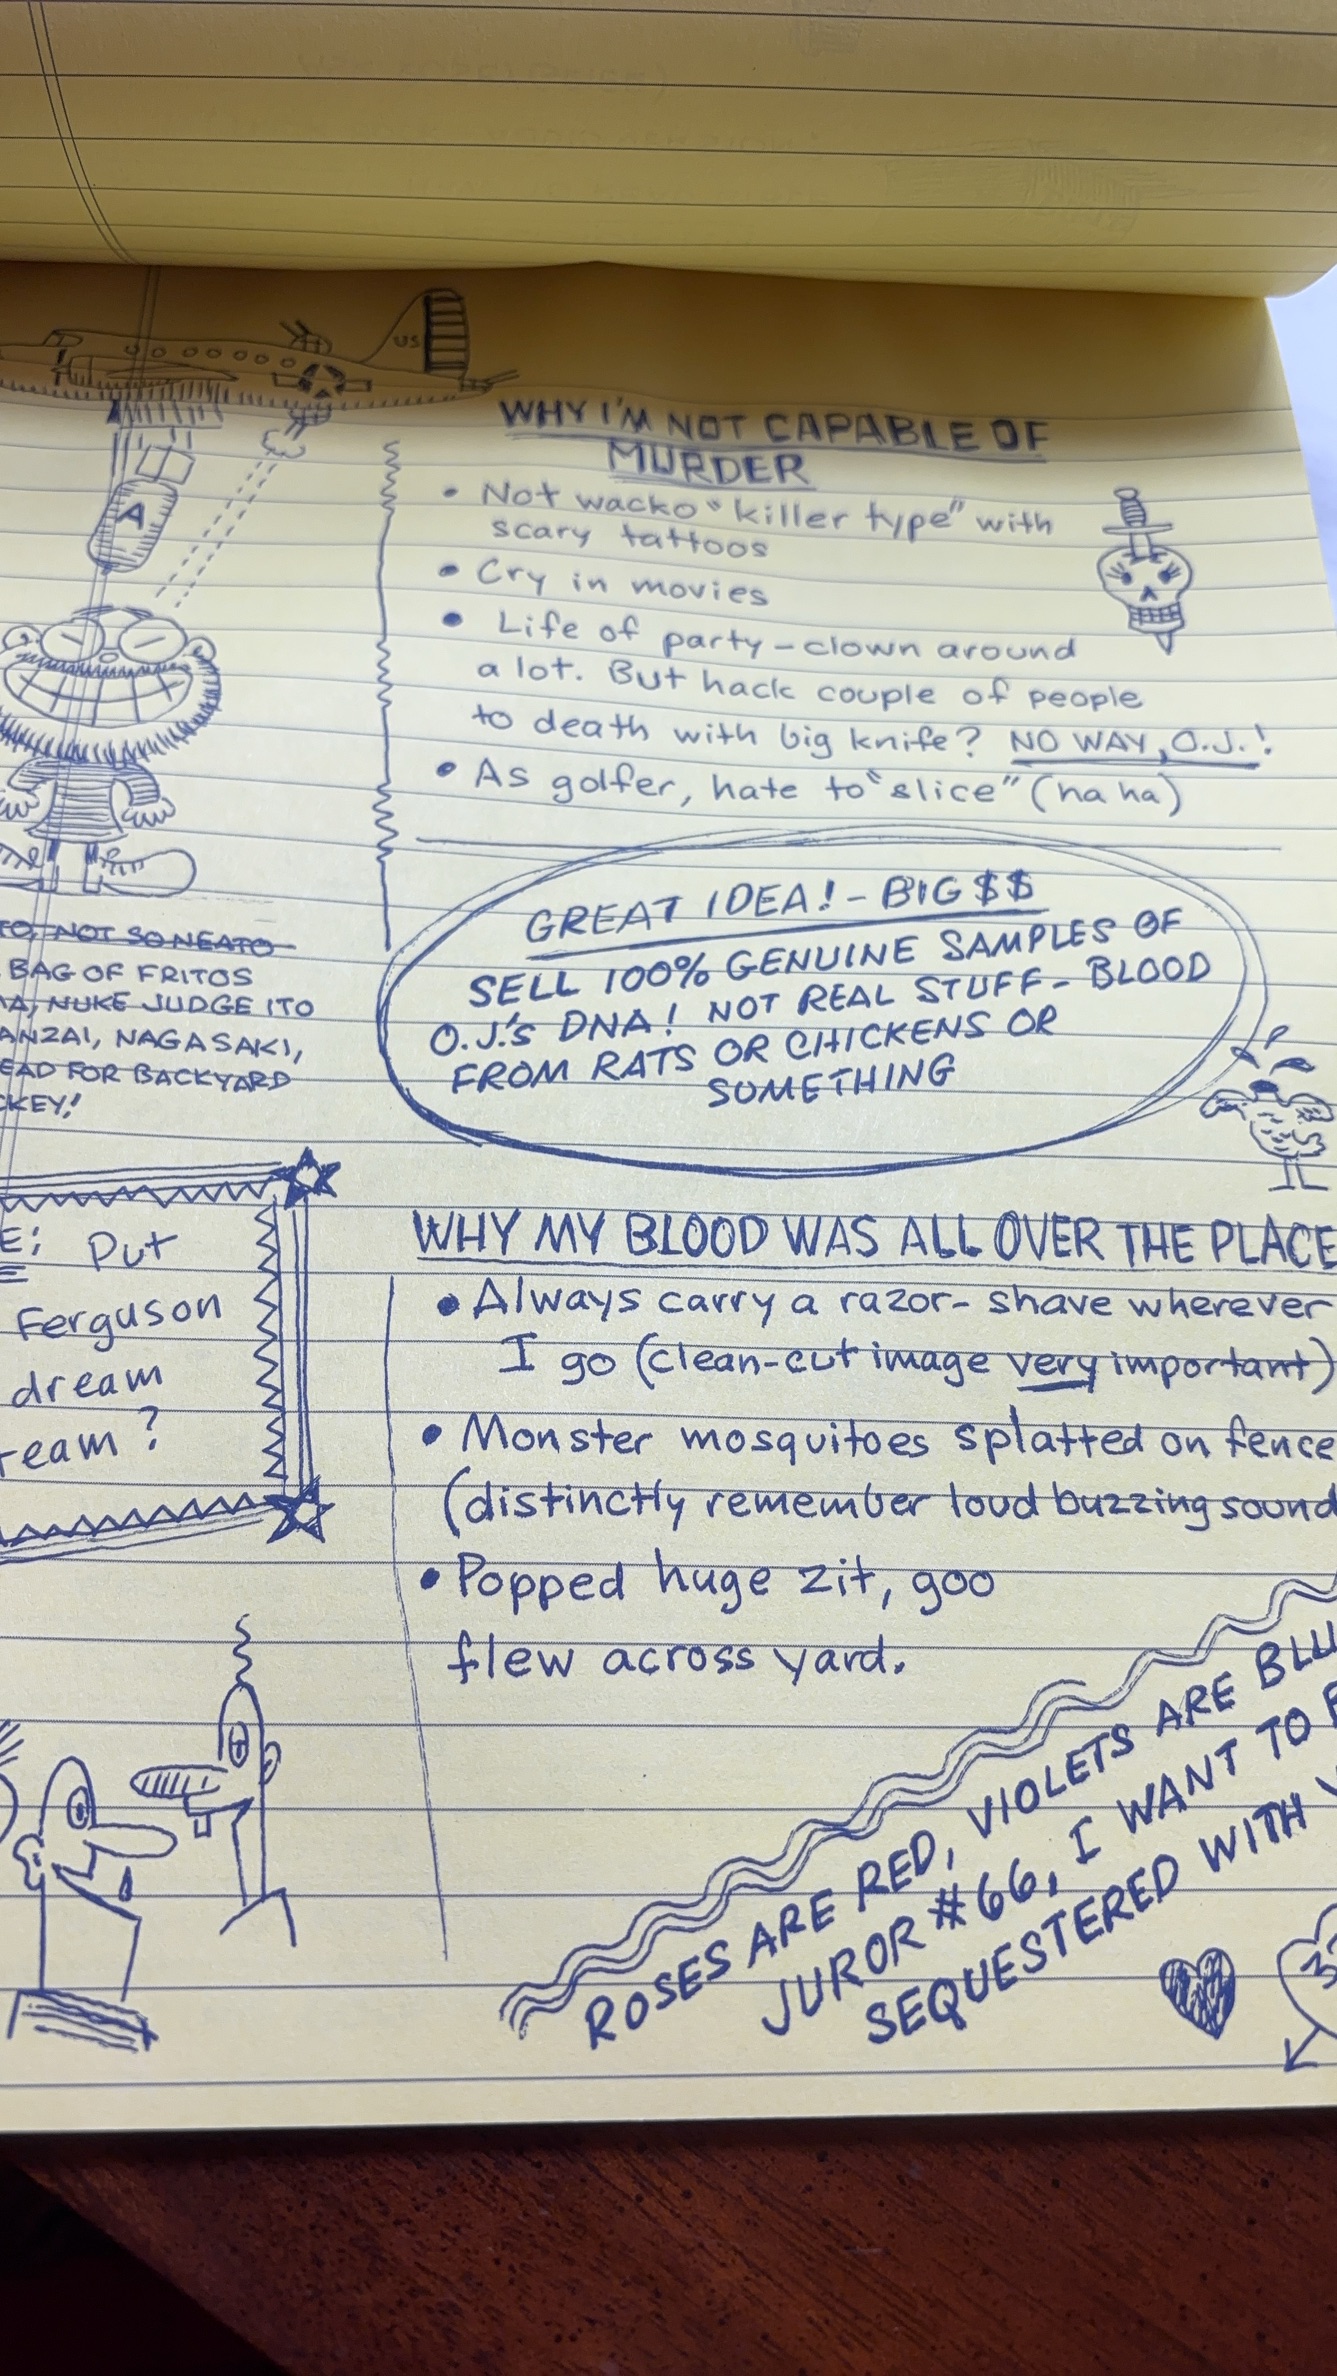 US
WHY I'M NOT CAPABLE OF
MURDER
• Not wacko "killer type" with
scary tattoos
• Cry in movies
• Life of party - clown around
a lot. But hack couple of people
to death with big knife? NO WAY, O.J.!
• As golfer, hate to "slice" (ha ha)
A
TO, NOT SO NEATO
BAG OF FRITOS
NUKE JUDGE ITO
ANZAI, NAGASAKI,
EAD FOR BACKYARD
CKEY!
GREAT IDEA! - BIG $$
SELL 100% GENUINE SAMPLES OF
O.J.'S DNA! NOT REAL STUFF - BLOOD
FROM RATS OR CHICKENS OR
SOMETHING
E: Put
Ferguson
dream
team?
WHY MY BLOOD WAS ALL OVER THE PLACE
• Always carry a razor - shave wherever
I go (clean-cut image very important)
• Monster mosquitoes splatted on fence
(distinctly remember loud buzzing sound
• Popped huge zit, goo
flew across yard.
ROSES ARE RED, VIOLETS ARE BLU
JUROR #66, I WANT TO
SEQUESTERED WITH